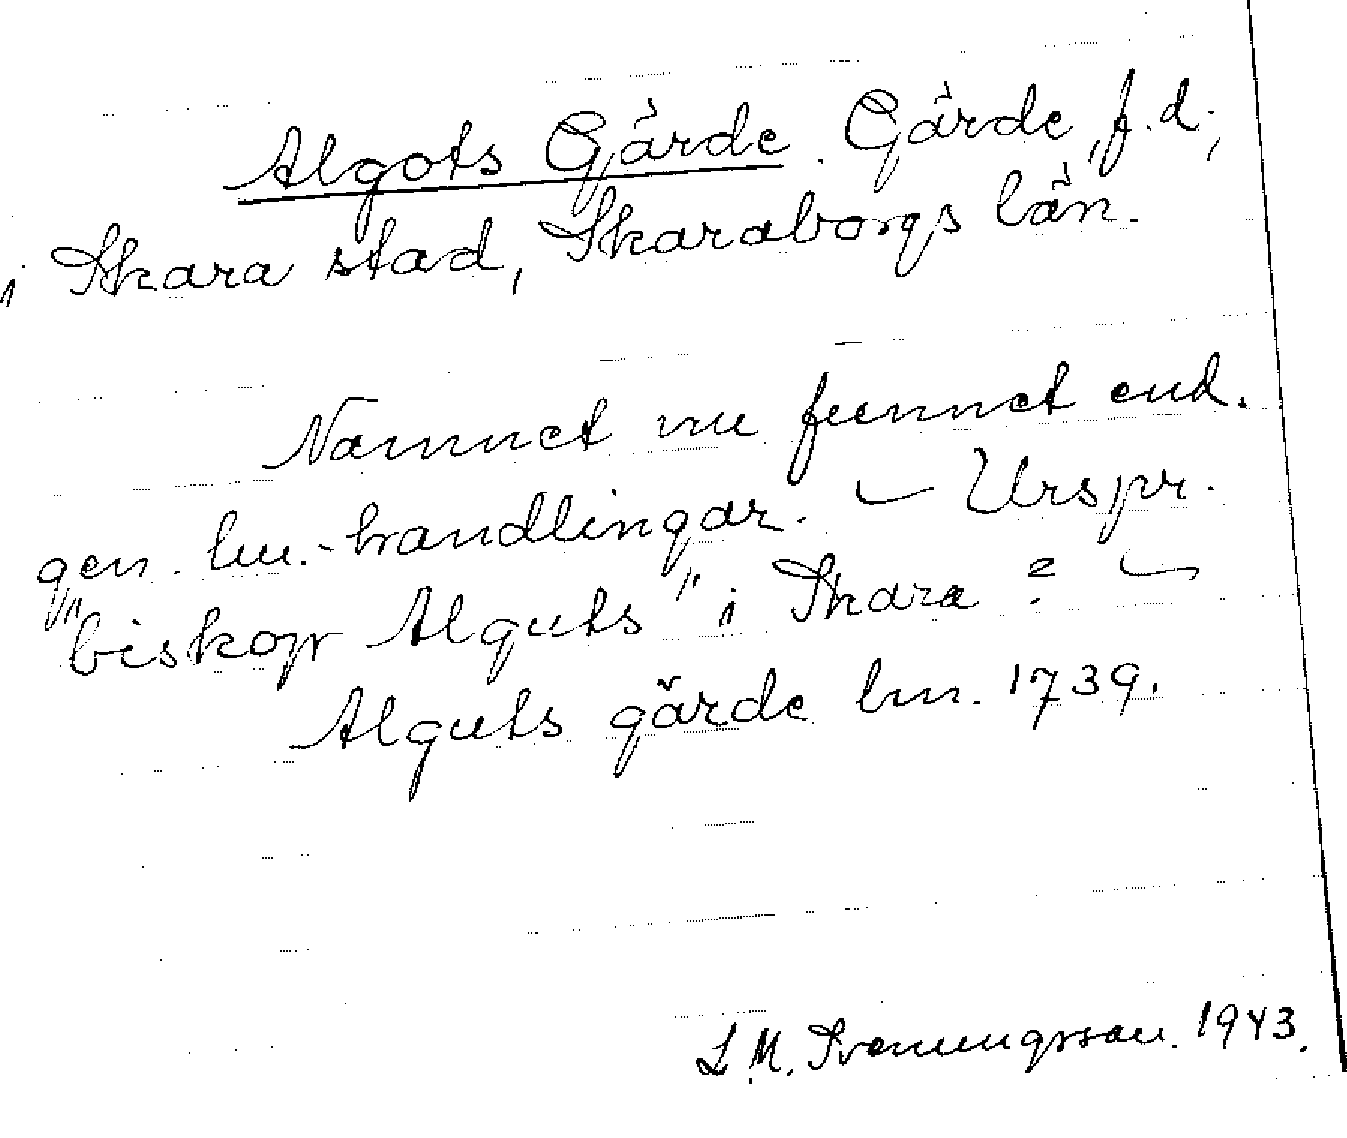 Algots Gärde. Gärde, f.d.,
i Skara stad, Skaraborgs län.
Namnet nu funnet end.
gen. lm.-handlingar. – Urspr.
"biskop Alguts" i Skara? –
Alguts gärde lm. 1739.
L.M. Svenungsson. 1943.